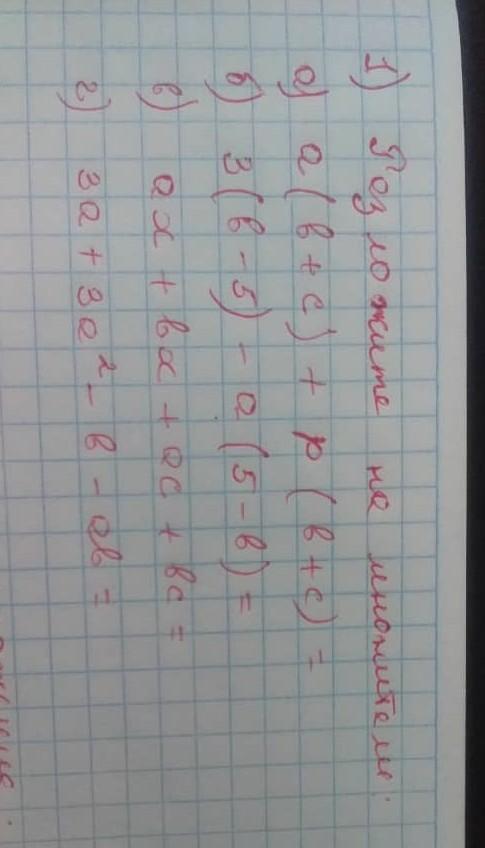 1) Разложите на множители:
а) a(b+c) + p(b+c) =
б) 3(b-5) - a(5-b) =
в) ax + bx + ac + bc =
г) 3a + 3a² - b - ab =